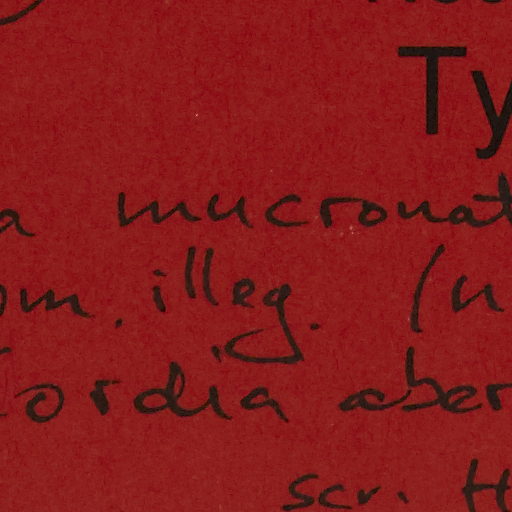 Ty
a mucronat
om. illeg. (n
Cordia aber
scr. H